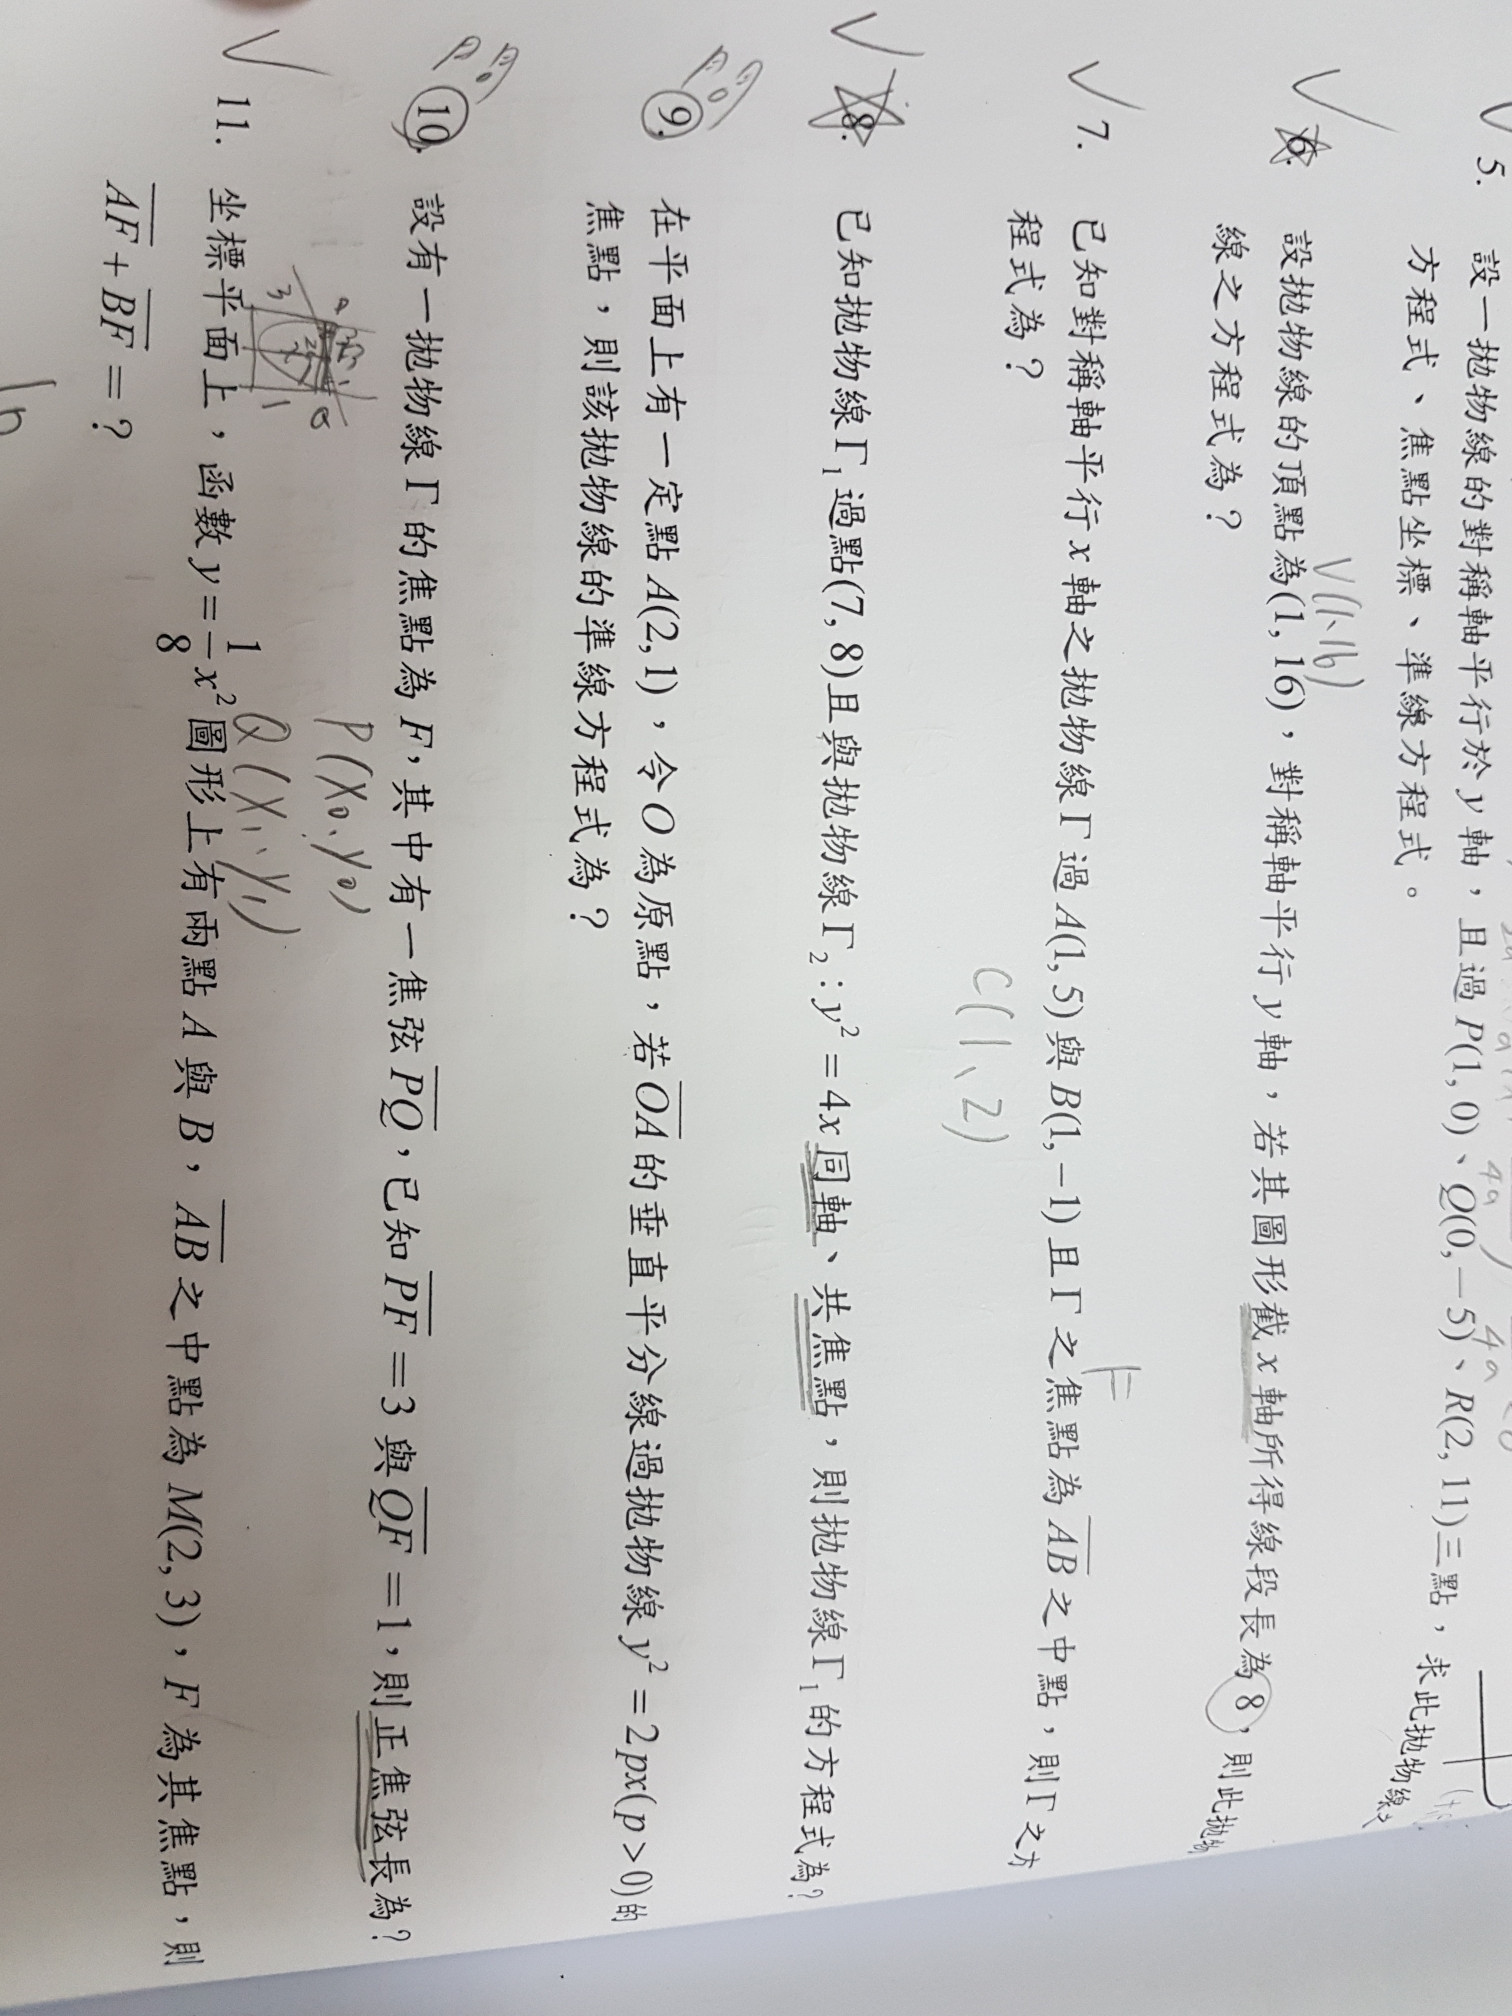 5. 設一拋物線的對稱軸平行於 y 軸，且過 P(1, 0)、Q(0, −5)、R(2, 11)三點，求此拋物線之
方程式、焦點坐標、準線方程式。
V(1、16)
6. 設拋物線的頂點為(1, 16)，對稱軸平行 y 軸，若其圖形截 x 軸所得線段長為 8，則此拋物
線之方程式為？
F
7. 已知對稱軸平行 x 軸之拋物線 Γ 過 A(1, 5)與 B(1, −1)且 Γ 之焦點為 AB 之中點，則 Γ 之方
程式為？
C(1、2)
8. 已知拋物線 Γ₁ 過點(7, 8)且與拋物線 Γ₂ : y² = 4x 同軸、共焦點，則拋物線 Γ₁ 的方程式為？
9. 在平面上有一定點 A(2, 1)，令 O 為原點，若 OA 的垂直平分線過拋物線 y² = 2px(p > 0)的
焦點，則該拋物線的準線方程式為？
10. 設有一拋物線 Γ 的焦點為 F，其中有一焦弦 PQ，已知 PF = 3 與 QF = 1，則正焦弦長為？
P(x₀、y₀)
Q(x₁、y₁)
11. 坐標平面上，函數 y = 1/8 x² 圖形上有兩點 A 與 B，AB 之中點為 M(2, 3)，F 為其焦點，則
AF + BF = ？